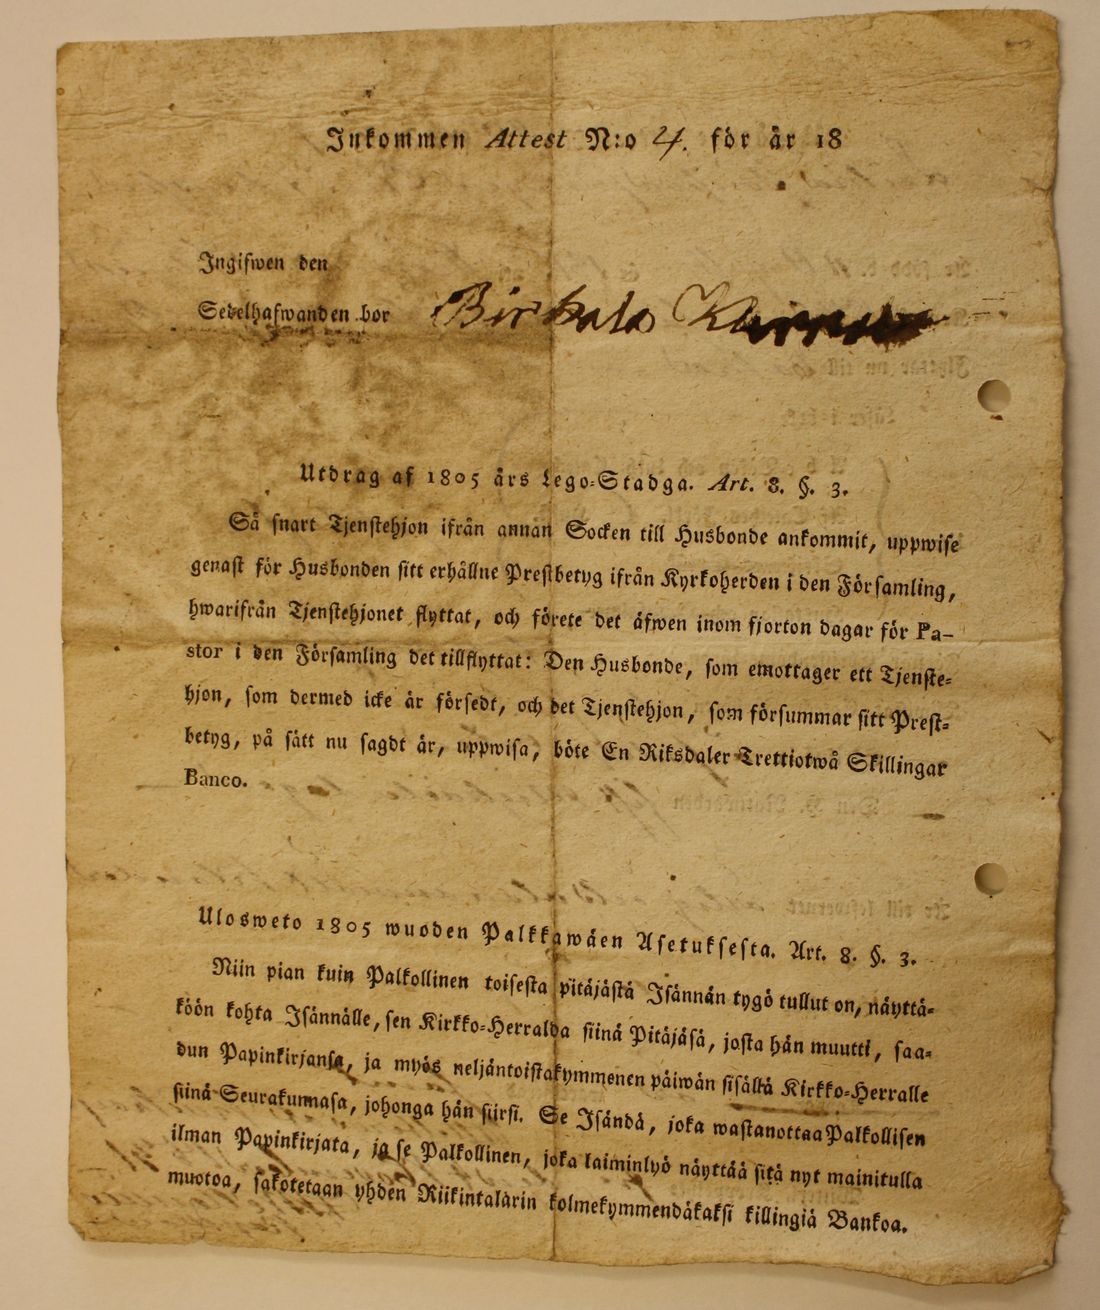 Inkommen Attest N:o 4. för år 18
Ingifwen den
Sedelhafwanden bor Birkala
Utdrag af 1805 års Lego-Stadga. Art. 8. §. 3.
Så snart Tjenstehjon ifrån annan Socken till Husbonde ankommit, uppwise
genast för Husbonden sitt erhållne Prestbetyg ifrån Kyrkoherden i den Församling,
hwarifrån Tjenstehjonet flyttat, och förete det äfwen inom fjorton dagar för Pa-
stor i den Församling det tillflyttat: Den Husbonde, som emottager ett Tjenste-
hjon, som dermed icke är försedt, och det Tjenstehjon, som försummar sitt Prest-
betyg, på sätt nu sagdt är, uppwisa, böte En Riksdaler Trettiotwå Skillingar
Banco.
Ulosweto 1805 wuoden Palkkawäen Asetuksesta. Art. 8. §. 3.
Niin pian kuin Palkollinen toisesta pitäjästä Isännän tygö tullut on, näyttä-
köön kohta Isännälle, sen Kirkko-Herralda siinä Pitäjäsä, josta hän muutti, saa-
dun Papinkirjansa, ja myös neljäntoistakymmenen päiwän sisältä Kirkko-Herralle
siinä Seurakunnasa, johonga hän siirsi. Se Isändä, joka wastanottaa Palkollisen
ilman Papinkirjata, ja se Palkollinen, joka laiminlyö näyttää sitä nyt mainitulla
muotoa, sakotetaan yhden Riikintalarin kolmekymmendäkaksi killingiä Bankoa.